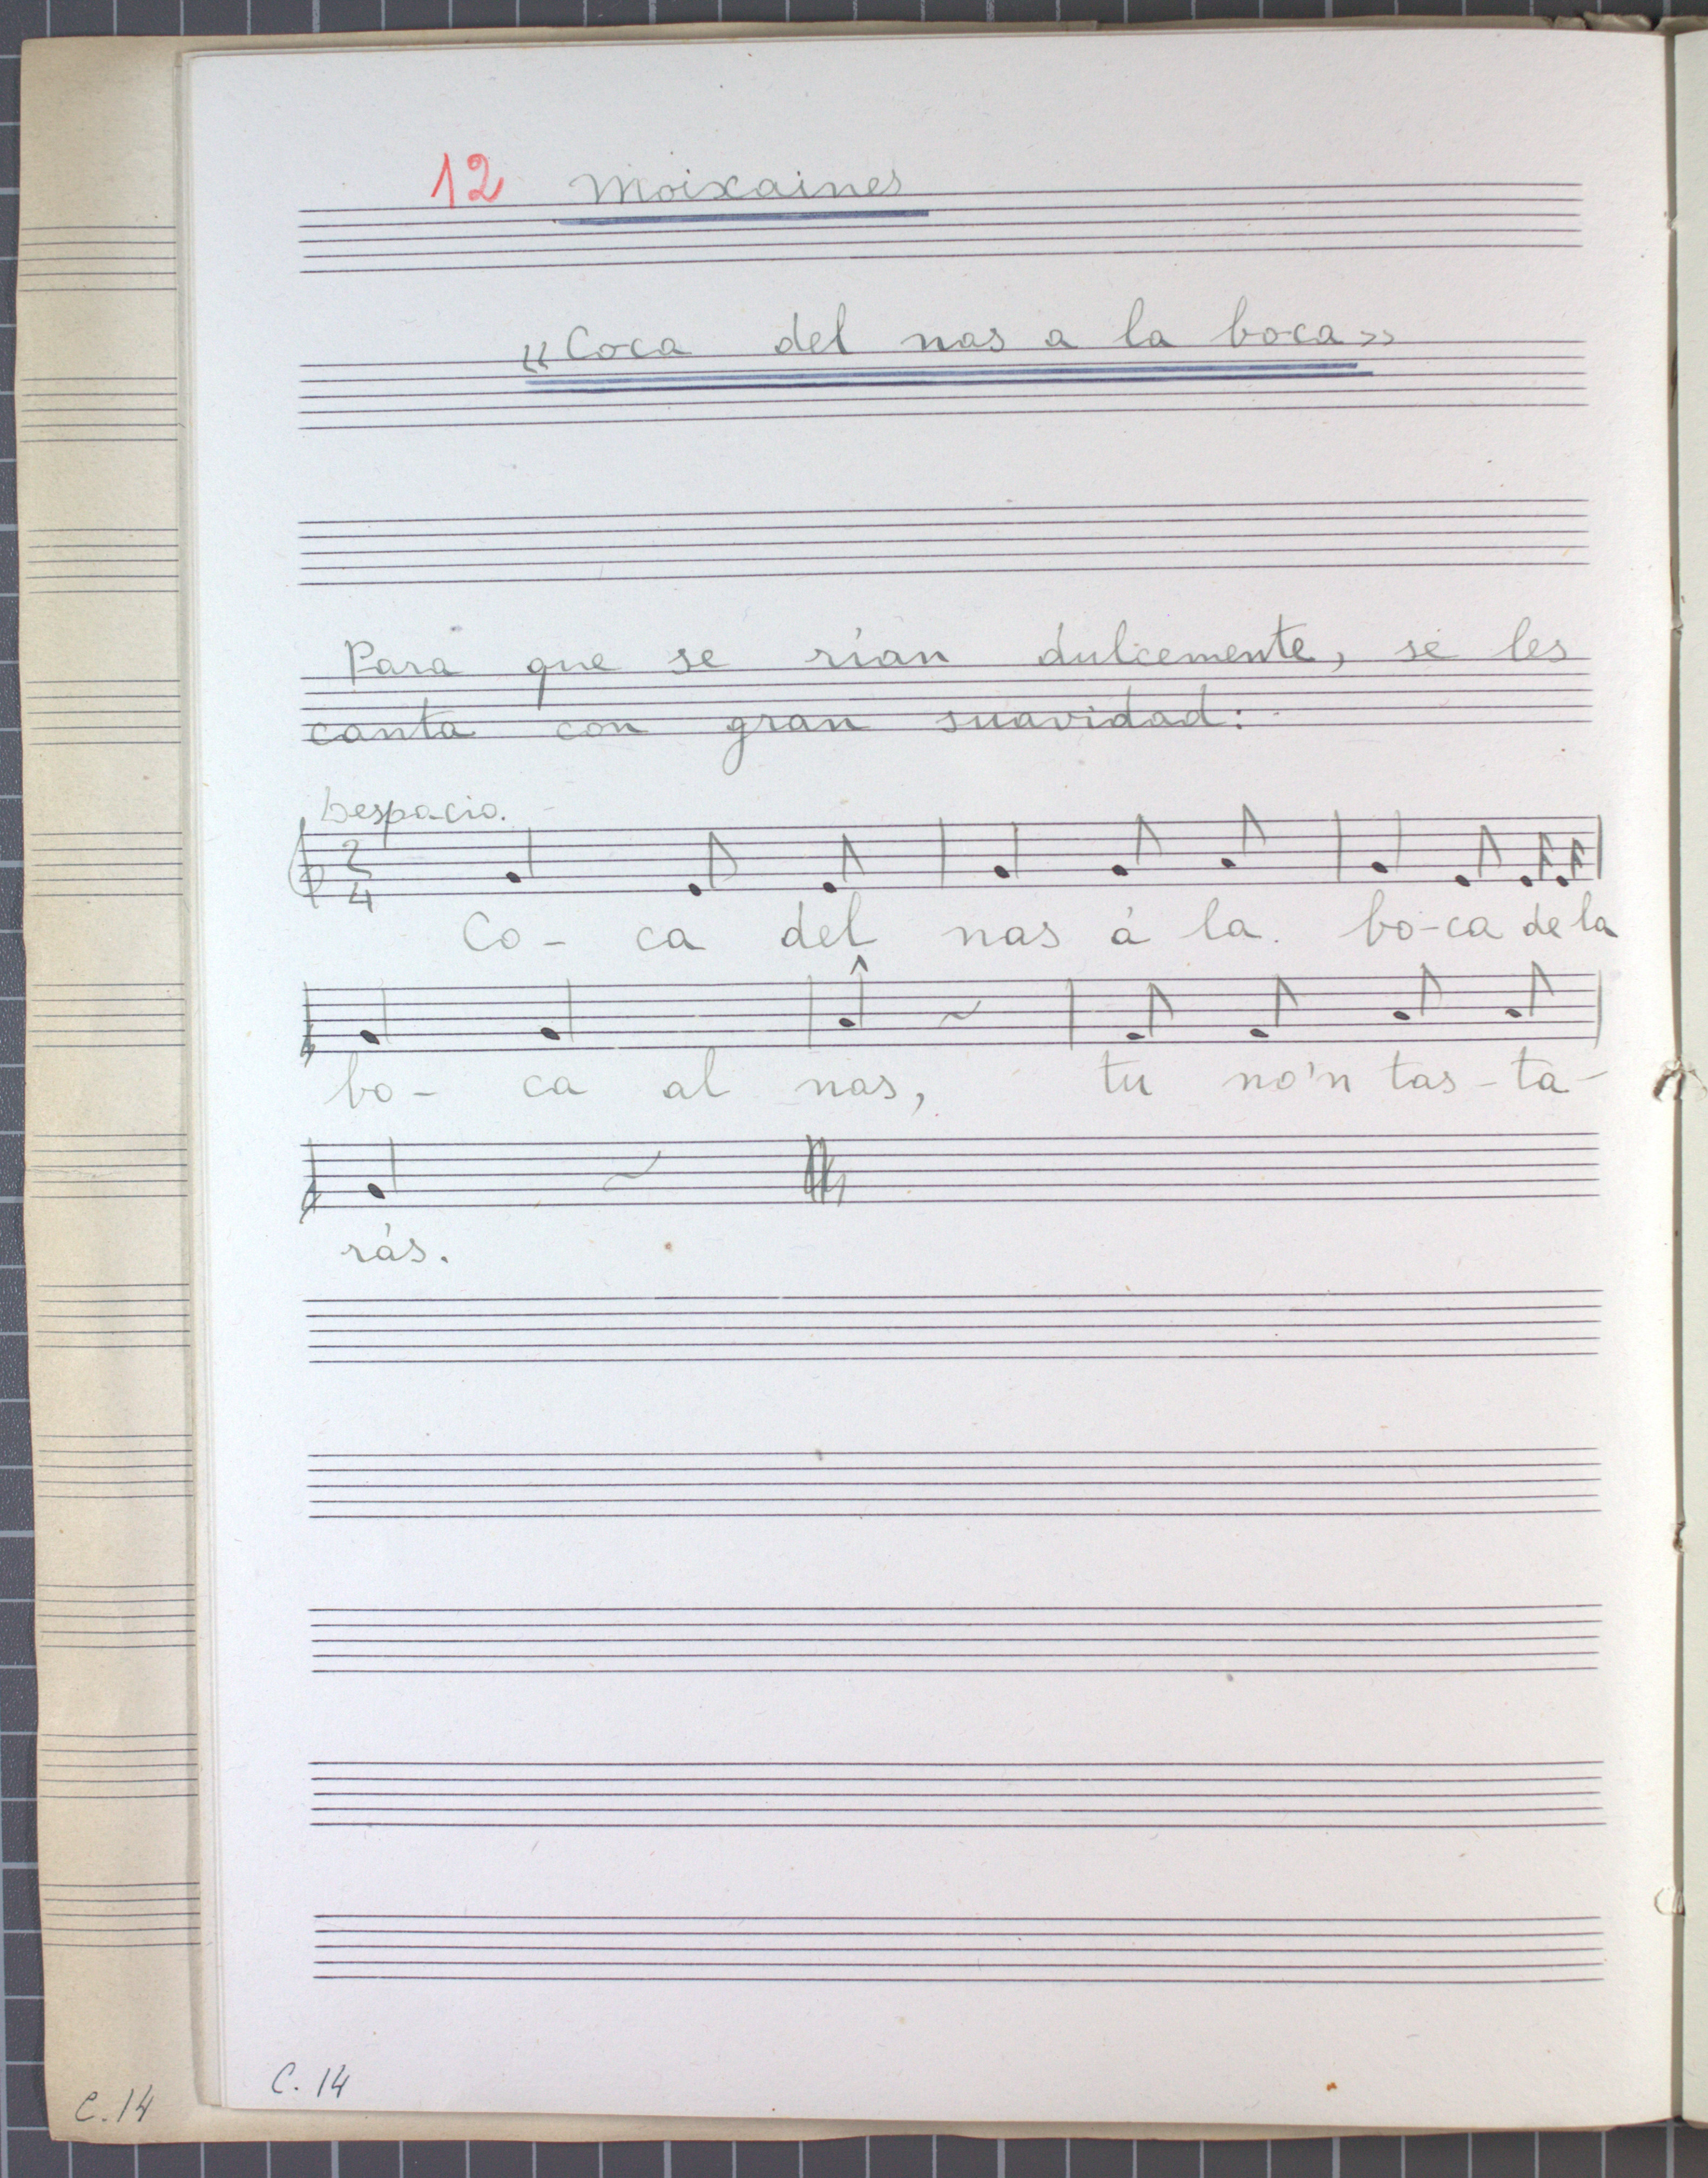 12 Moixaines
"Coca del nas a la boca»
Para que se rían dulcemente, se les
canta con gran suavidad:
Despacio.
2
4
Co- ca del nas á la. bo-ca de la
bo- ca al nas, tu no'n tas-ta-
rás.
C. 14
C. 14